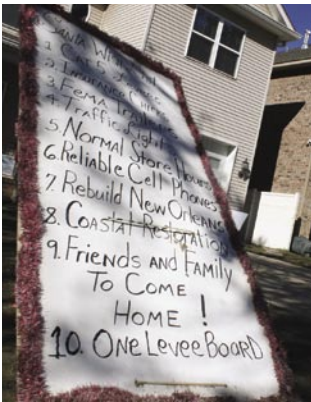 SANTA
1.
2. INSURANCE CHECKS
3. FEMA TRAILERS
4. TRAFFIC Lights
5. NORMAL STORE HOURS
6. Reliable Cell Phones
7. Rebuild New Orleans
8. COASTAL RESTORATION
9. FRIENDS AND FAMILY
TO COME
HOME!
10. ONE LEVEE BOARD